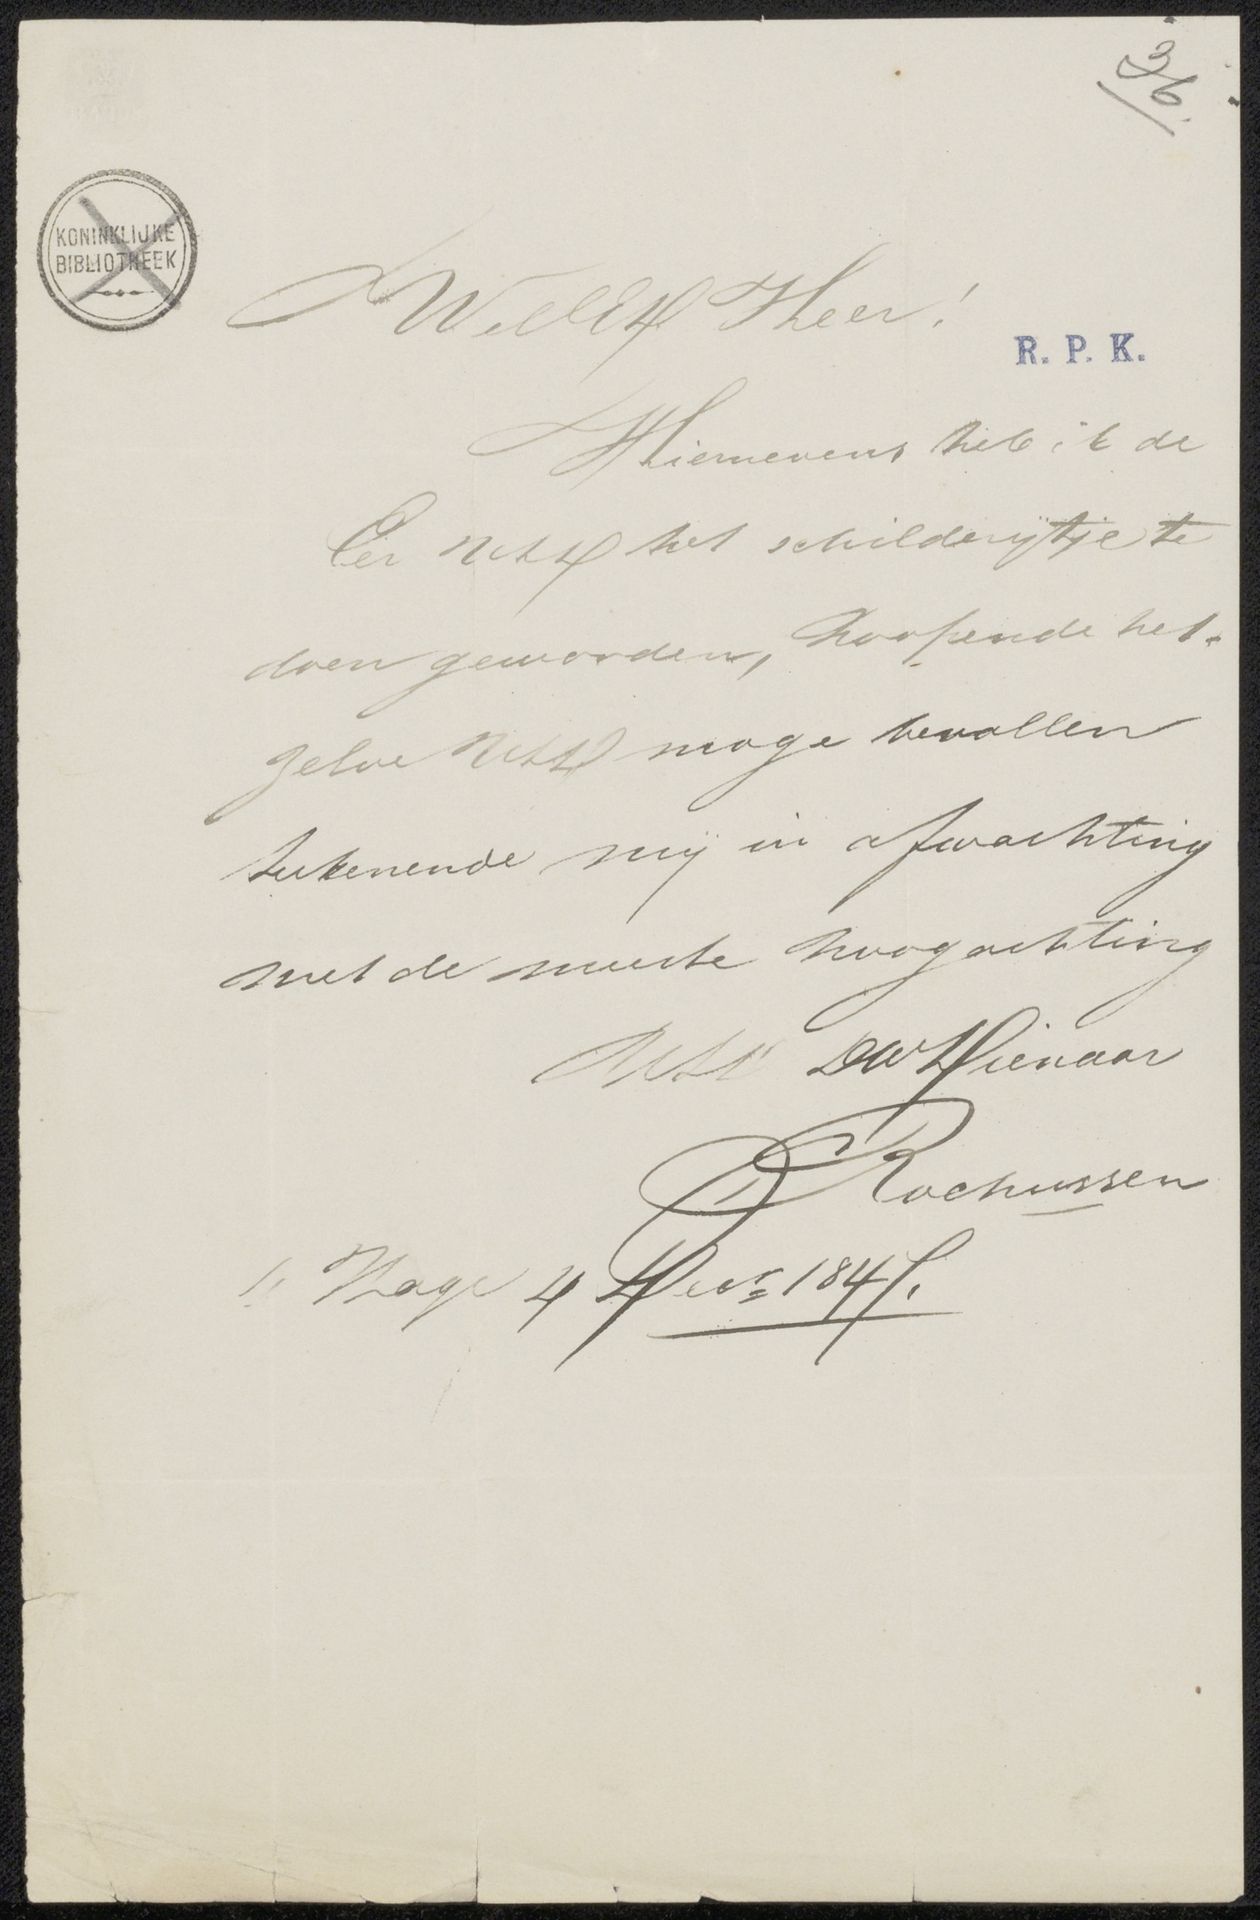 36.
KONINKLIJKE
BIBLIOTHEEK
WelEd Heer!
R. P. K.
Hiernevens heb ik de
Eer UEd het schilderijtje te
doen geworden, hoopende het-
zelve UEd moge bevallen
tekenende mij in afwachting
met de meeste hoogachting
UEd DW Dienaar
Rochussen
Hage 4 Decr 184